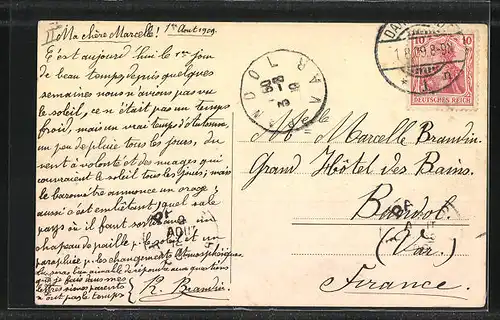 Ma chère Marcelle! 1er Aout 1909.
C'est aujourd'hui le 1er jour
de beau temps, depuis quelques
semaines nous n'avions pas vu
le soleil, ce n'était pas un temps
froid, mais un vrai temps d'Automne,
un peu de pluie tous les jours, du
vent à volonté et des nuages qui
couvraient le soleil tous les jours; mais
le baromètre annonce un orage;
aussi c'est embêtant quel sale
pays où il faut sortir un
chapeau de paille p. le soleil et un
parapluie p. les changements atmosphériques
aimable de répondre aux questions
que je fais dans mes
lettres si mes parents
n'ont pas le temps
R. Brandin
BANDOL
VAR
AOUT
10 10
DEUTSCHES REICH
1.8.09.8-9V.
Melle Marcelle Brandin
Grand Hôtel des Bains.
Bandol.
(Var.)
France.